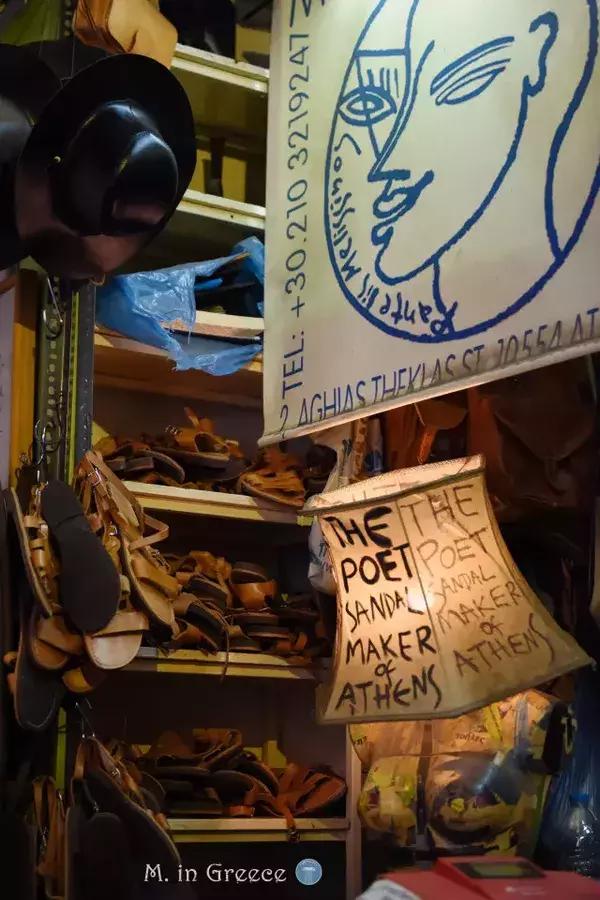 TEL: +30.210 3219247
Pantelis Melissinos
2 AGHIAS THEKLAS ST. 10554 AT
THE
POET
SANDAL
MAKER
of
ATHENS
THE
POET
SANDAL
MAKER
of
ATHENS
M. in Greece